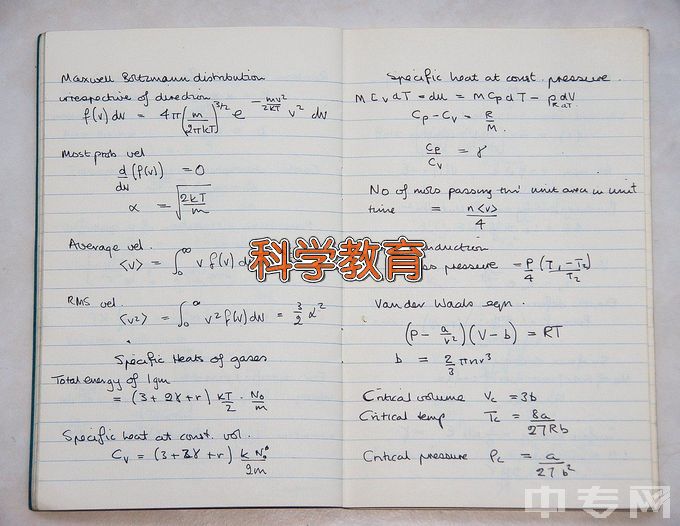 Maxwell Boltzmann distribution
irrespective of direction
f(v) dv = 4π(m/2πkT)^3/2 e^-mv²/2kT v² dv
Most prob vel
d/dv (f(v)) = 0
α = √2kT/m
Average vel.
<v> = ∫₀^∞ v f(v) d
RMS vel.
<v²> = ∫₀^∞ v² f(v) dv = 3/2 α²
Specific Heats of gases
Total energy of 1gm
= (3+2γ+r) kT/2 · N₀/m
Specific heat at const. vol.
Cv = (3+2γ+r) k N₀/2m
科学教育
Specific heat at const. pressure.
M Cv dT = du = M Cp dT - p dV
R dT.
Cp - Cv = R/M.
Cp/Cv = γ
No of mols passing thro' unit area in unit
time = n<v>/4
pressure = P/4 (T₁-T₂)/T₂
Van der Waals eqn.
(P - a/v²)(V - b) = RT
b = 2/3 πnr³
Critical volume Vc = 3b
Critical temp Tc = 8a/27Rb
Critical pressure Pc = a/27b²
中专网